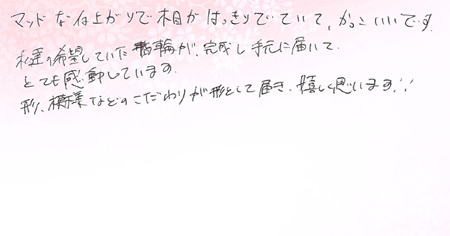 マッドな仕上がりで木目がはっきりでていて、かっこいいです。
私達の希望していた指輪が、完成し手元に届いて、
とても感動しています。
形、模様などのこだわりが形として届き、嬉しく思います。